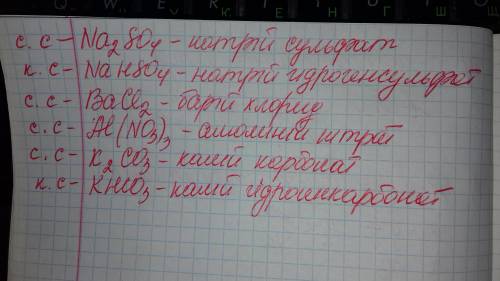 с. с - Na₂SO₄ - натрій сульфат
к. с - NaHSO₄ - натрій гідрогенсульфат
с. с - BaCl₂ - барій хлорид
с. с - Al(NO₃)₃ - алюміній
с. с - K₂CO₃ - калій карбонат
к. с - KHCO₃ - калій гідрогенкарбонат